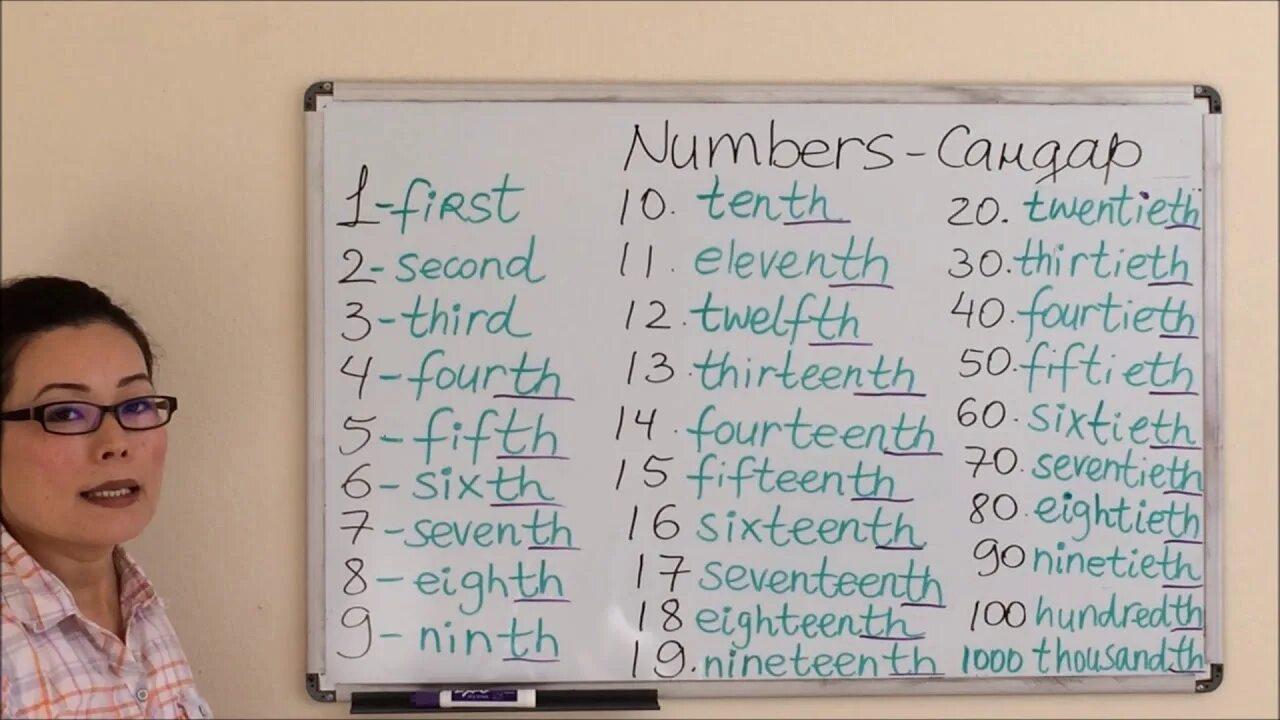 Numbers - Сандар
1-first
2-second
3-third
4-fourth
5-fifth
6-sixth
7-seventh
8-eighth
9-ninth
10. tenth
11. eleventh
12. twelfth
13. thirteenth
14. fourteenth
15 fifteenth
16 sixteenth
17 seventeenth
18 eighteenth
19. nineteenth
20. twentieth
30. thirtieth
40. fourtieth
50. fiftieth
60. sixtieth
70. seventieth
80. eightieth
90 ninetieth
100 hundredth
1000 thousandth